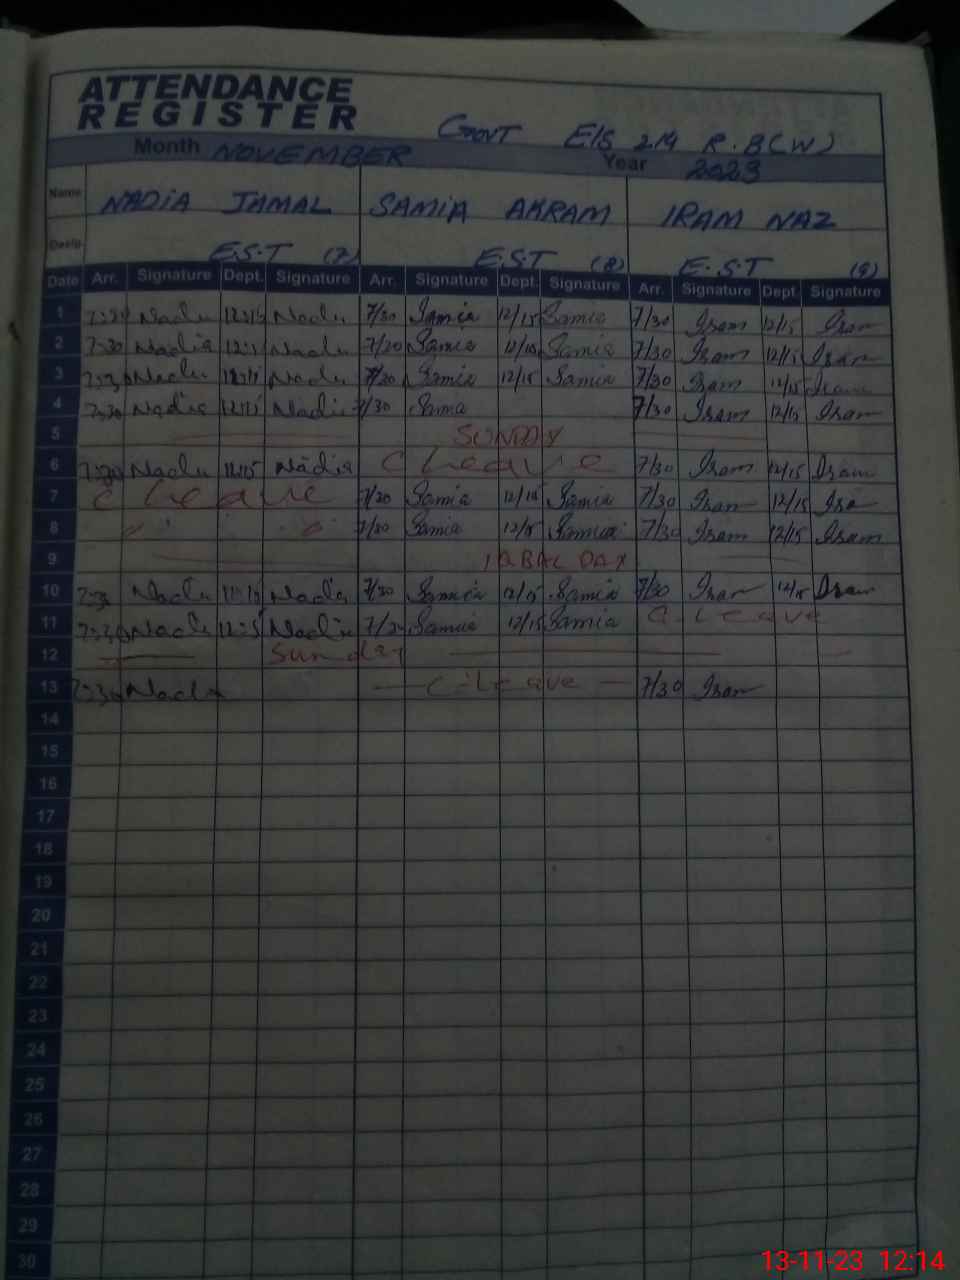 ATTENDANCE
REGISTER
GOVT E/S 214 R.B(W)
Month NOVEMBER Year 2023
Name NADIA JAMAL SAMIA AKRAM IRAM NAZ
Desig. E.S.T (7) E.S.T (8) E.S.T (9)
Date Arr. Signature Dept. Signature Arr. Signature Dept. Signature Arr. Signature Dept. Signature
1 Nadia Nadia 7/30 Samia 12/15 Samia 7/30 Iram 12/15 Iram
2 7:30 Nadia Nadia 7/30 Samia 12/15 Samia 7/30 Iram 12/15 Iram
3 Nadia Nadia 7/30 Samia 12/15 Samia 7/30 Iram 12/15 Iram
4 7:30 Nadia 12:15 Nadia 7/30 Samia 7/30 Iram 12/15 Iram
5 SUNDAY
6 7:30 Nadia 12:15 Nadia C leave 7/30 Iram 12/15 Iram
7 C leave 7/30 Samia 12/15 Samia 7/30 Iram 12/15 Iram
8 7/30 Samia 12/15 Samia 7/30 Iram 12/15 Iram
9 IQBAL DAY
10 Nadia Nadia 7/30 Samia 12/15 Samia 7/30 Iram 12/15 Iram
11 7:30 Nadia 12:15 Nadia 7/30 Samia 12/15 Samia C. Leave
12 Sunday
13 7:30 Nadia C. Leave 7/30 Iram
14
15
16
17
18
19
20
21
22
23
24
25
26
27
28
29
30
13-11-23 12:14